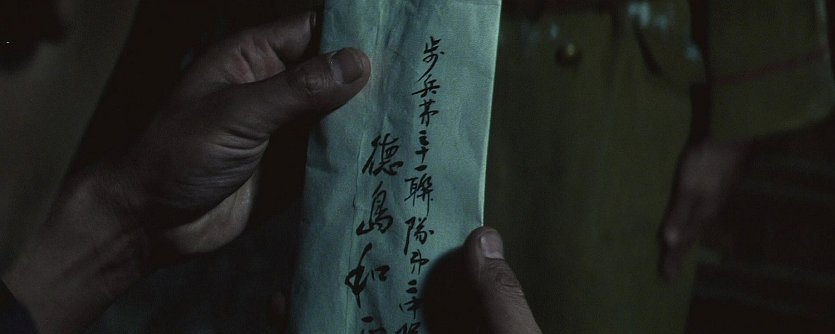 歩兵第三十一聯隊第二中
徳島和